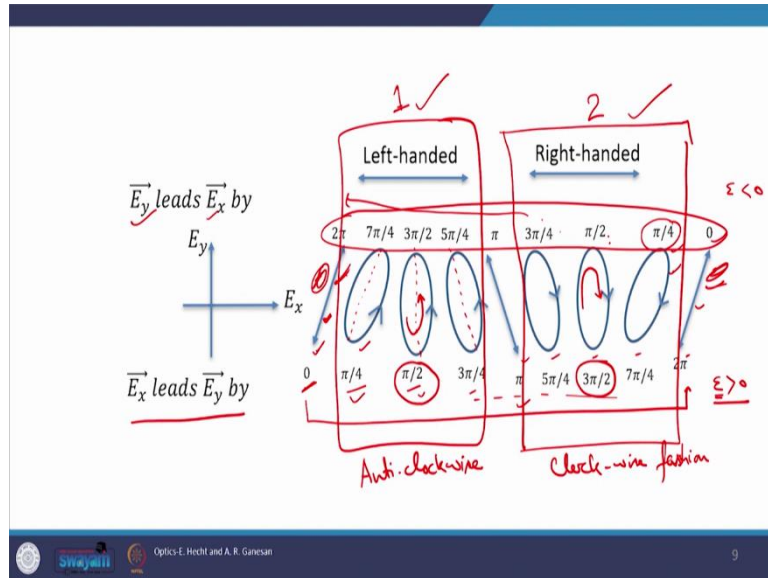 1 ✓ 2 ✓
Left-handed Right-handed
ε<0
E⃗y leads E⃗x by
2π 7π/4 3π/2 5π/4 π 3π/4 π/2 π/4 0
Ey
Ex
0 π/4 π/2 3π/4 π 5π/4 3π/2 7π/4 2π
E⃗x leads E⃗y by
ε>0
Anti-clockwise Clock-wise fashion
swayam Optics-E. Hecht and A. R. Ganesan 9